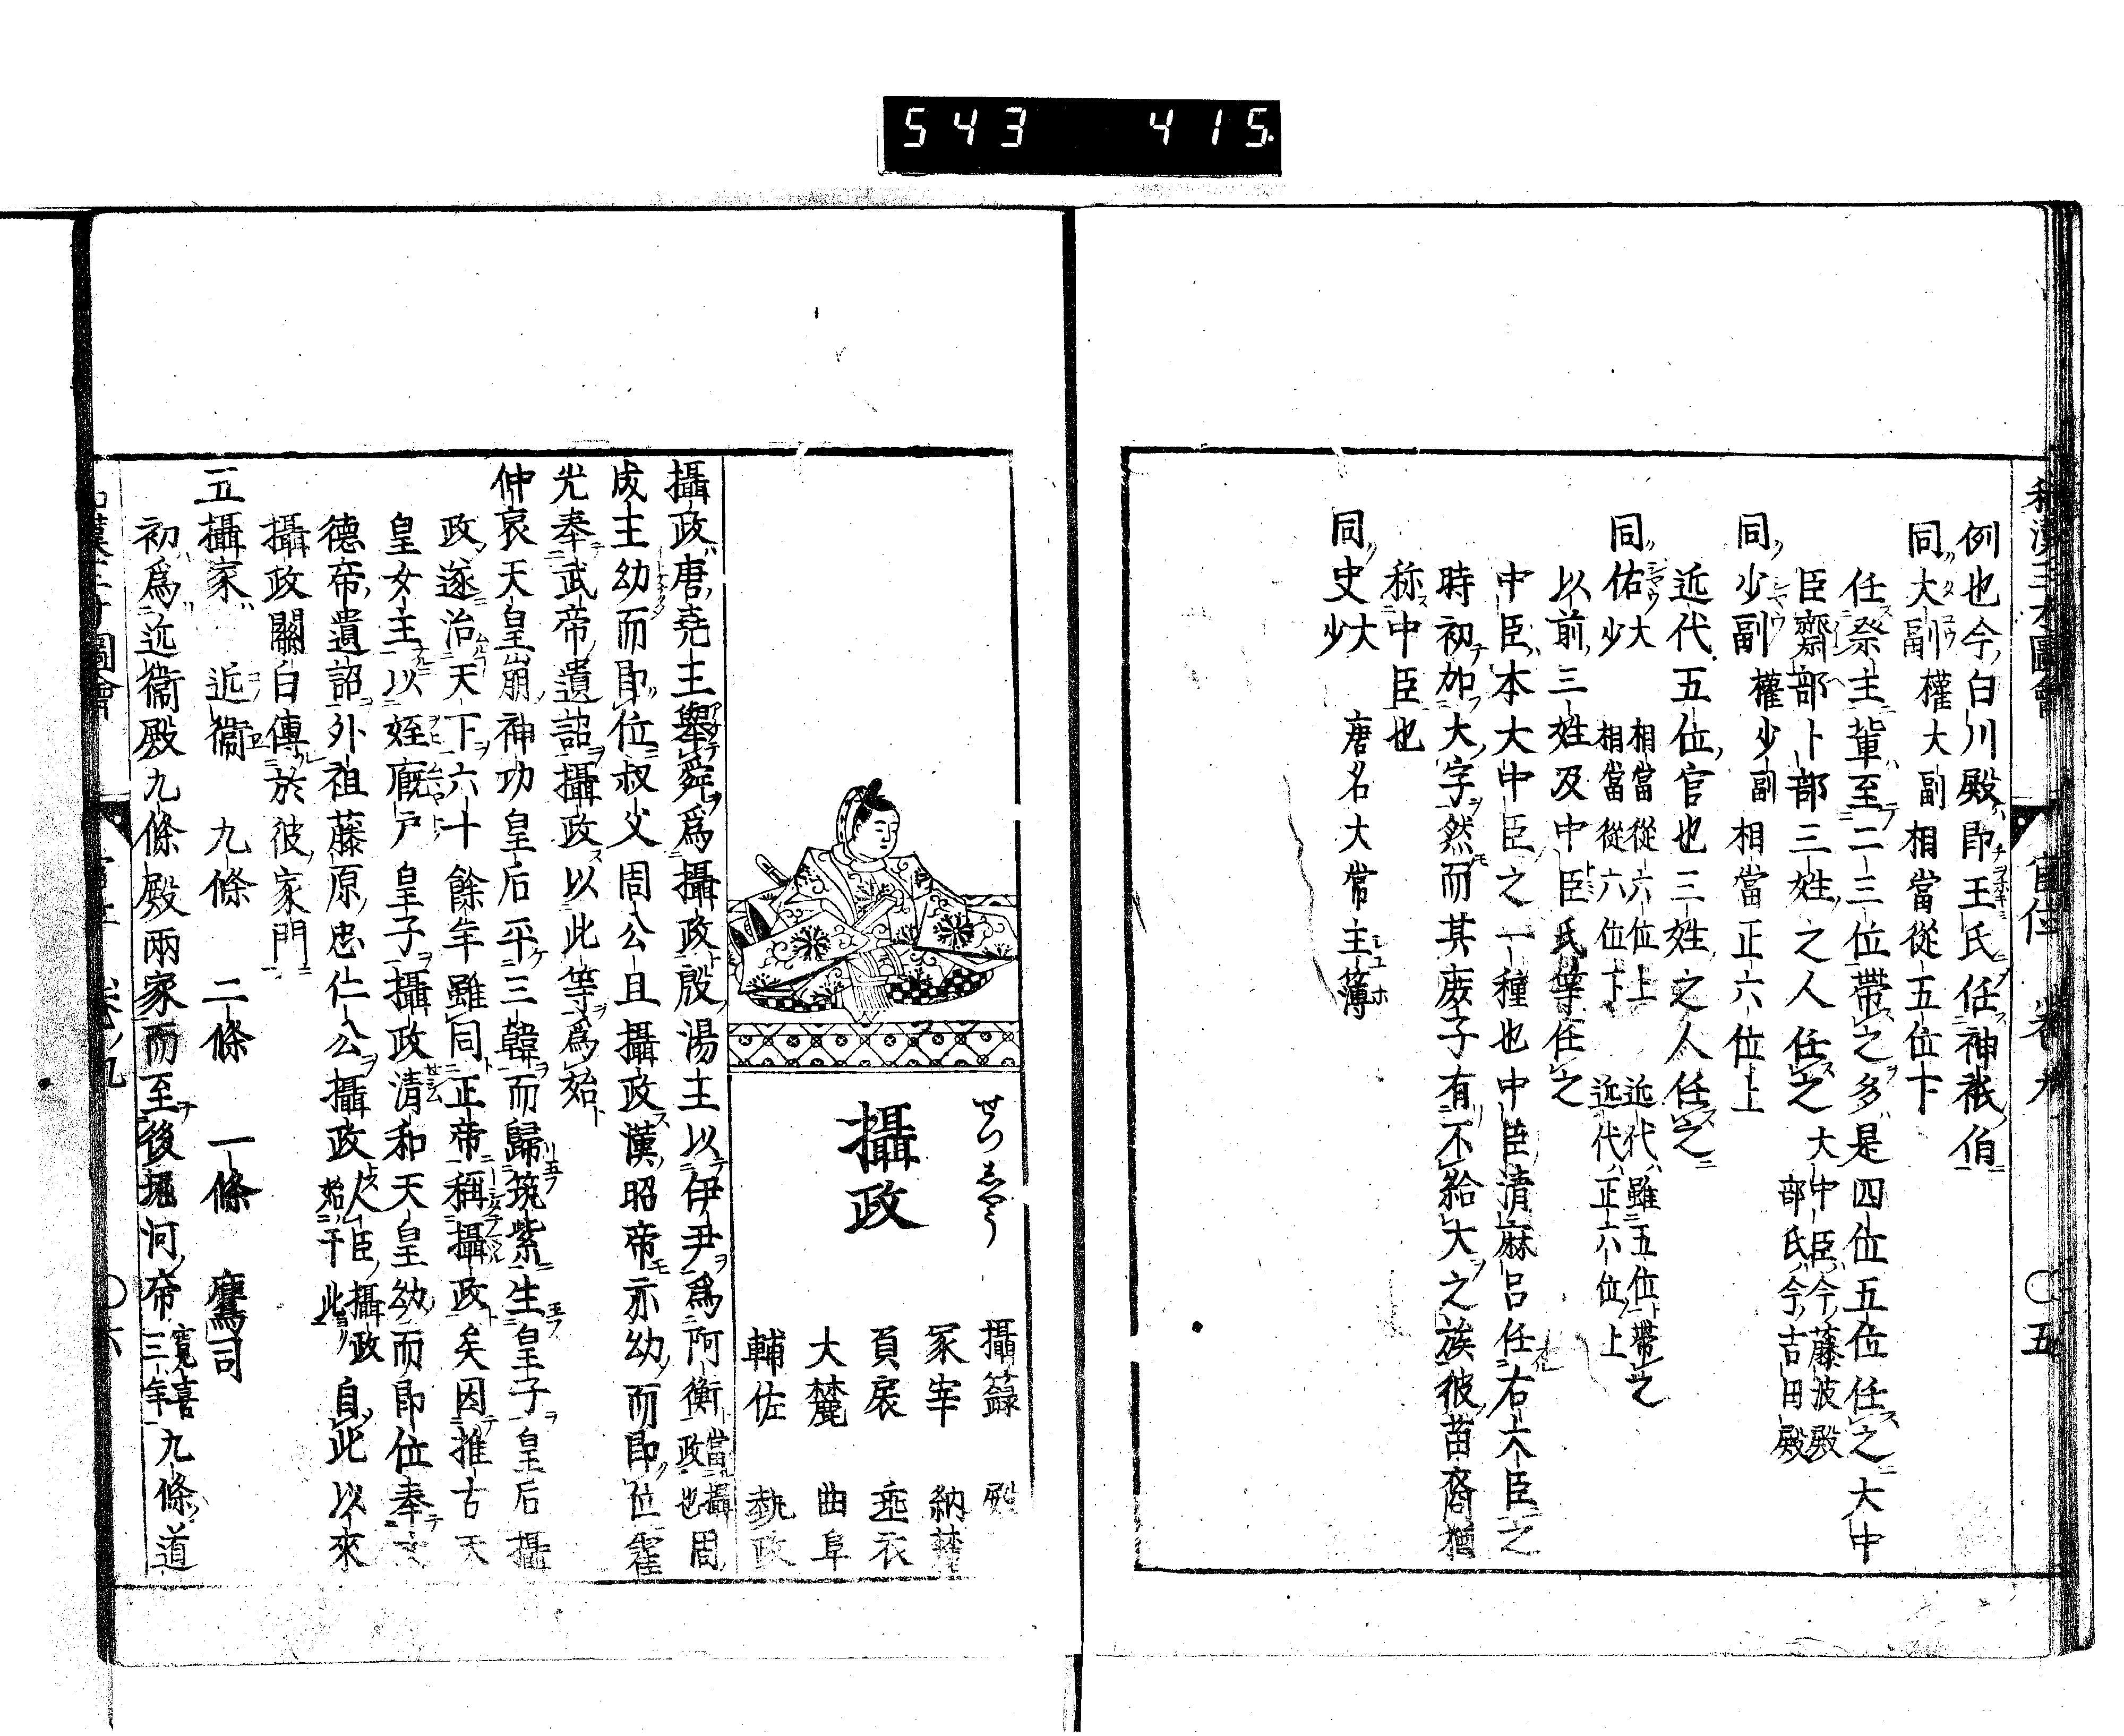 543 415
和漢三才圖會 官位 卷九 〇五
例也今白川殿即王氏任神祇伯
同大副 權大副 相當從五位下
任祭主輩至二三位帶之多是四位五位任之大中
臣齋部卜部三姓之人任之 大中臣今藤波殿
部氏今吉田殿
同少副 權少副 相當正六位上
近代五位官也三姓之人任之
同佑大 相當從六位上 近代雖五位帶之
少 相當從六位下 近代正六位上
以前三姓及中臣氏等任之
中臣本大中臣之一種也中臣清麻呂任右大臣之
時初加大字然而其庻子有不給大之族彼苗裔猶
称中臣也
同史大 唐名大常主簿
少
攝政 せつしやう
攝籙 殿
冢宰 納麓
負扆 垂衣
大麓 曲阜
輔佐 執政
攝政唐堯王舉舜爲攝政殷湯王以伊尹爲阿衡 當攝
政也 周
成王幼而即位叔父周公旦攝政漢昭帝亦幼而即位霍
光奉武帝遺詔攝政以此等爲始
仲哀天皇崩神功皇后平三韓而歸筑紫生皇子皇后攝
政遂治天下六十餘年雖同正帝稱攝政矣因推古天
皇女主以姪廐戸皇子攝政清和天皇幼而即位奉文
德帝遺詔外祖藤原忠仁公攝政 人臣攝政
始于此 自此以來
攝政關白傳於彼家門
五攝家 近衞 九條 二條 一條 鷹司
初爲近衞殿九條殿兩家而至後堀河帝 寛喜
三年 九條道
和漢三才圖會 卷九 〇六